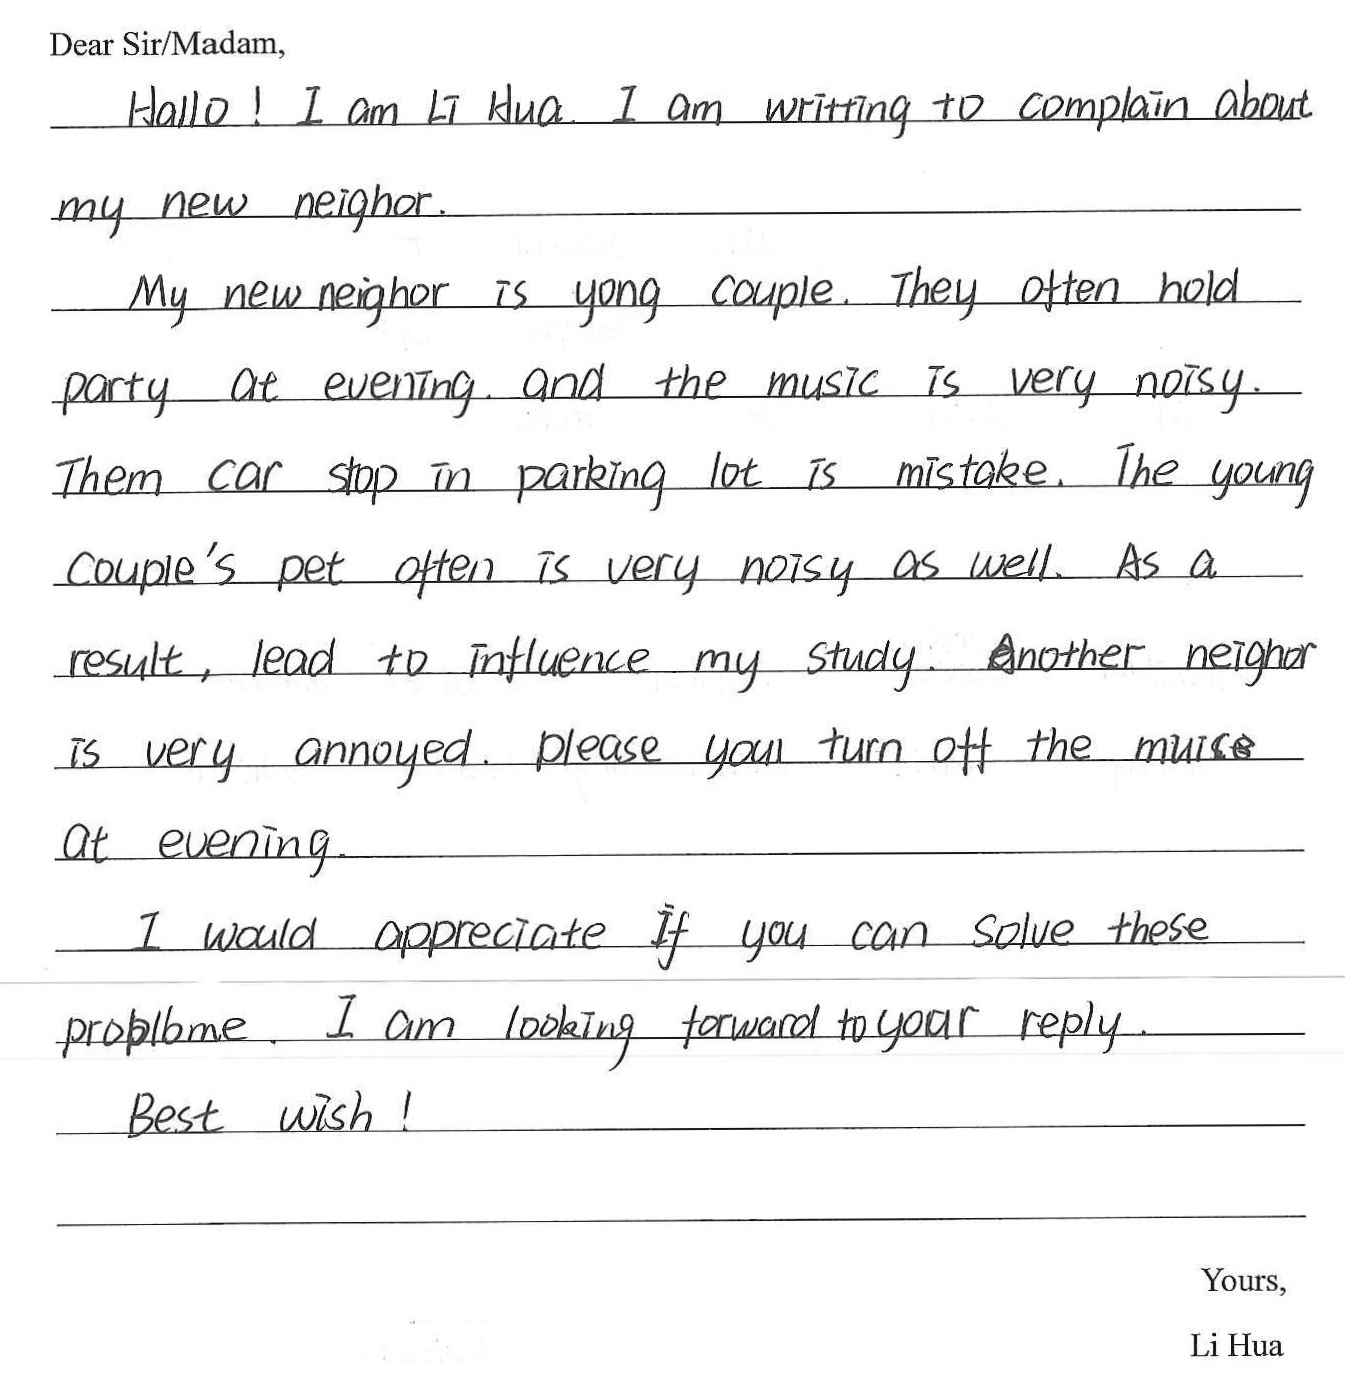 Dear Sir/Madam,
Hallo! I am Li Hua. I am writting to complain about
my new neighor.
My new neighor is yong couple. They often hold
party at evening. and the music is very noisy.
Them car stop in parking lot is mistake. The young
couple's pet often is very noisy as well. As a
result, lead to influence my study. Another neighor
is very annoyed. please your turn off the muice
at evening.
I would appreciate if you can solve these
problbme. I am looking forward to your reply.
Best wish!
Yours,
Li Hua